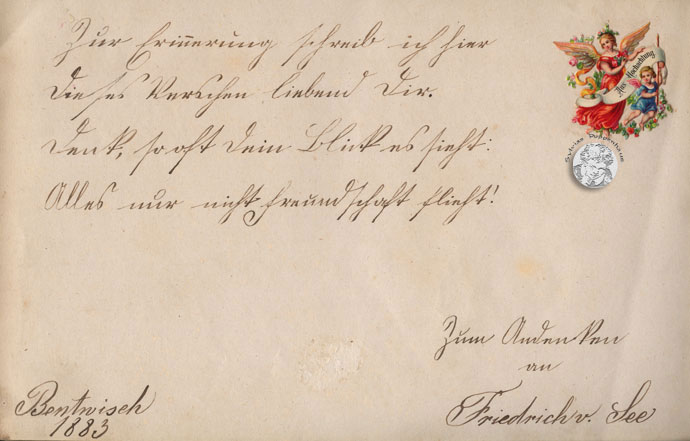 Zur Erinnerung schreib ich hier
dieses Verschen liebend dir.
Denk, so oft dein Blick es sieht:
Alles nur nicht Freundschaft flieht!
Aus Hochachtung
Sylvias Puppenhaus
Zum Andenken
an
Friedrich v. See
Bentwisch
1883